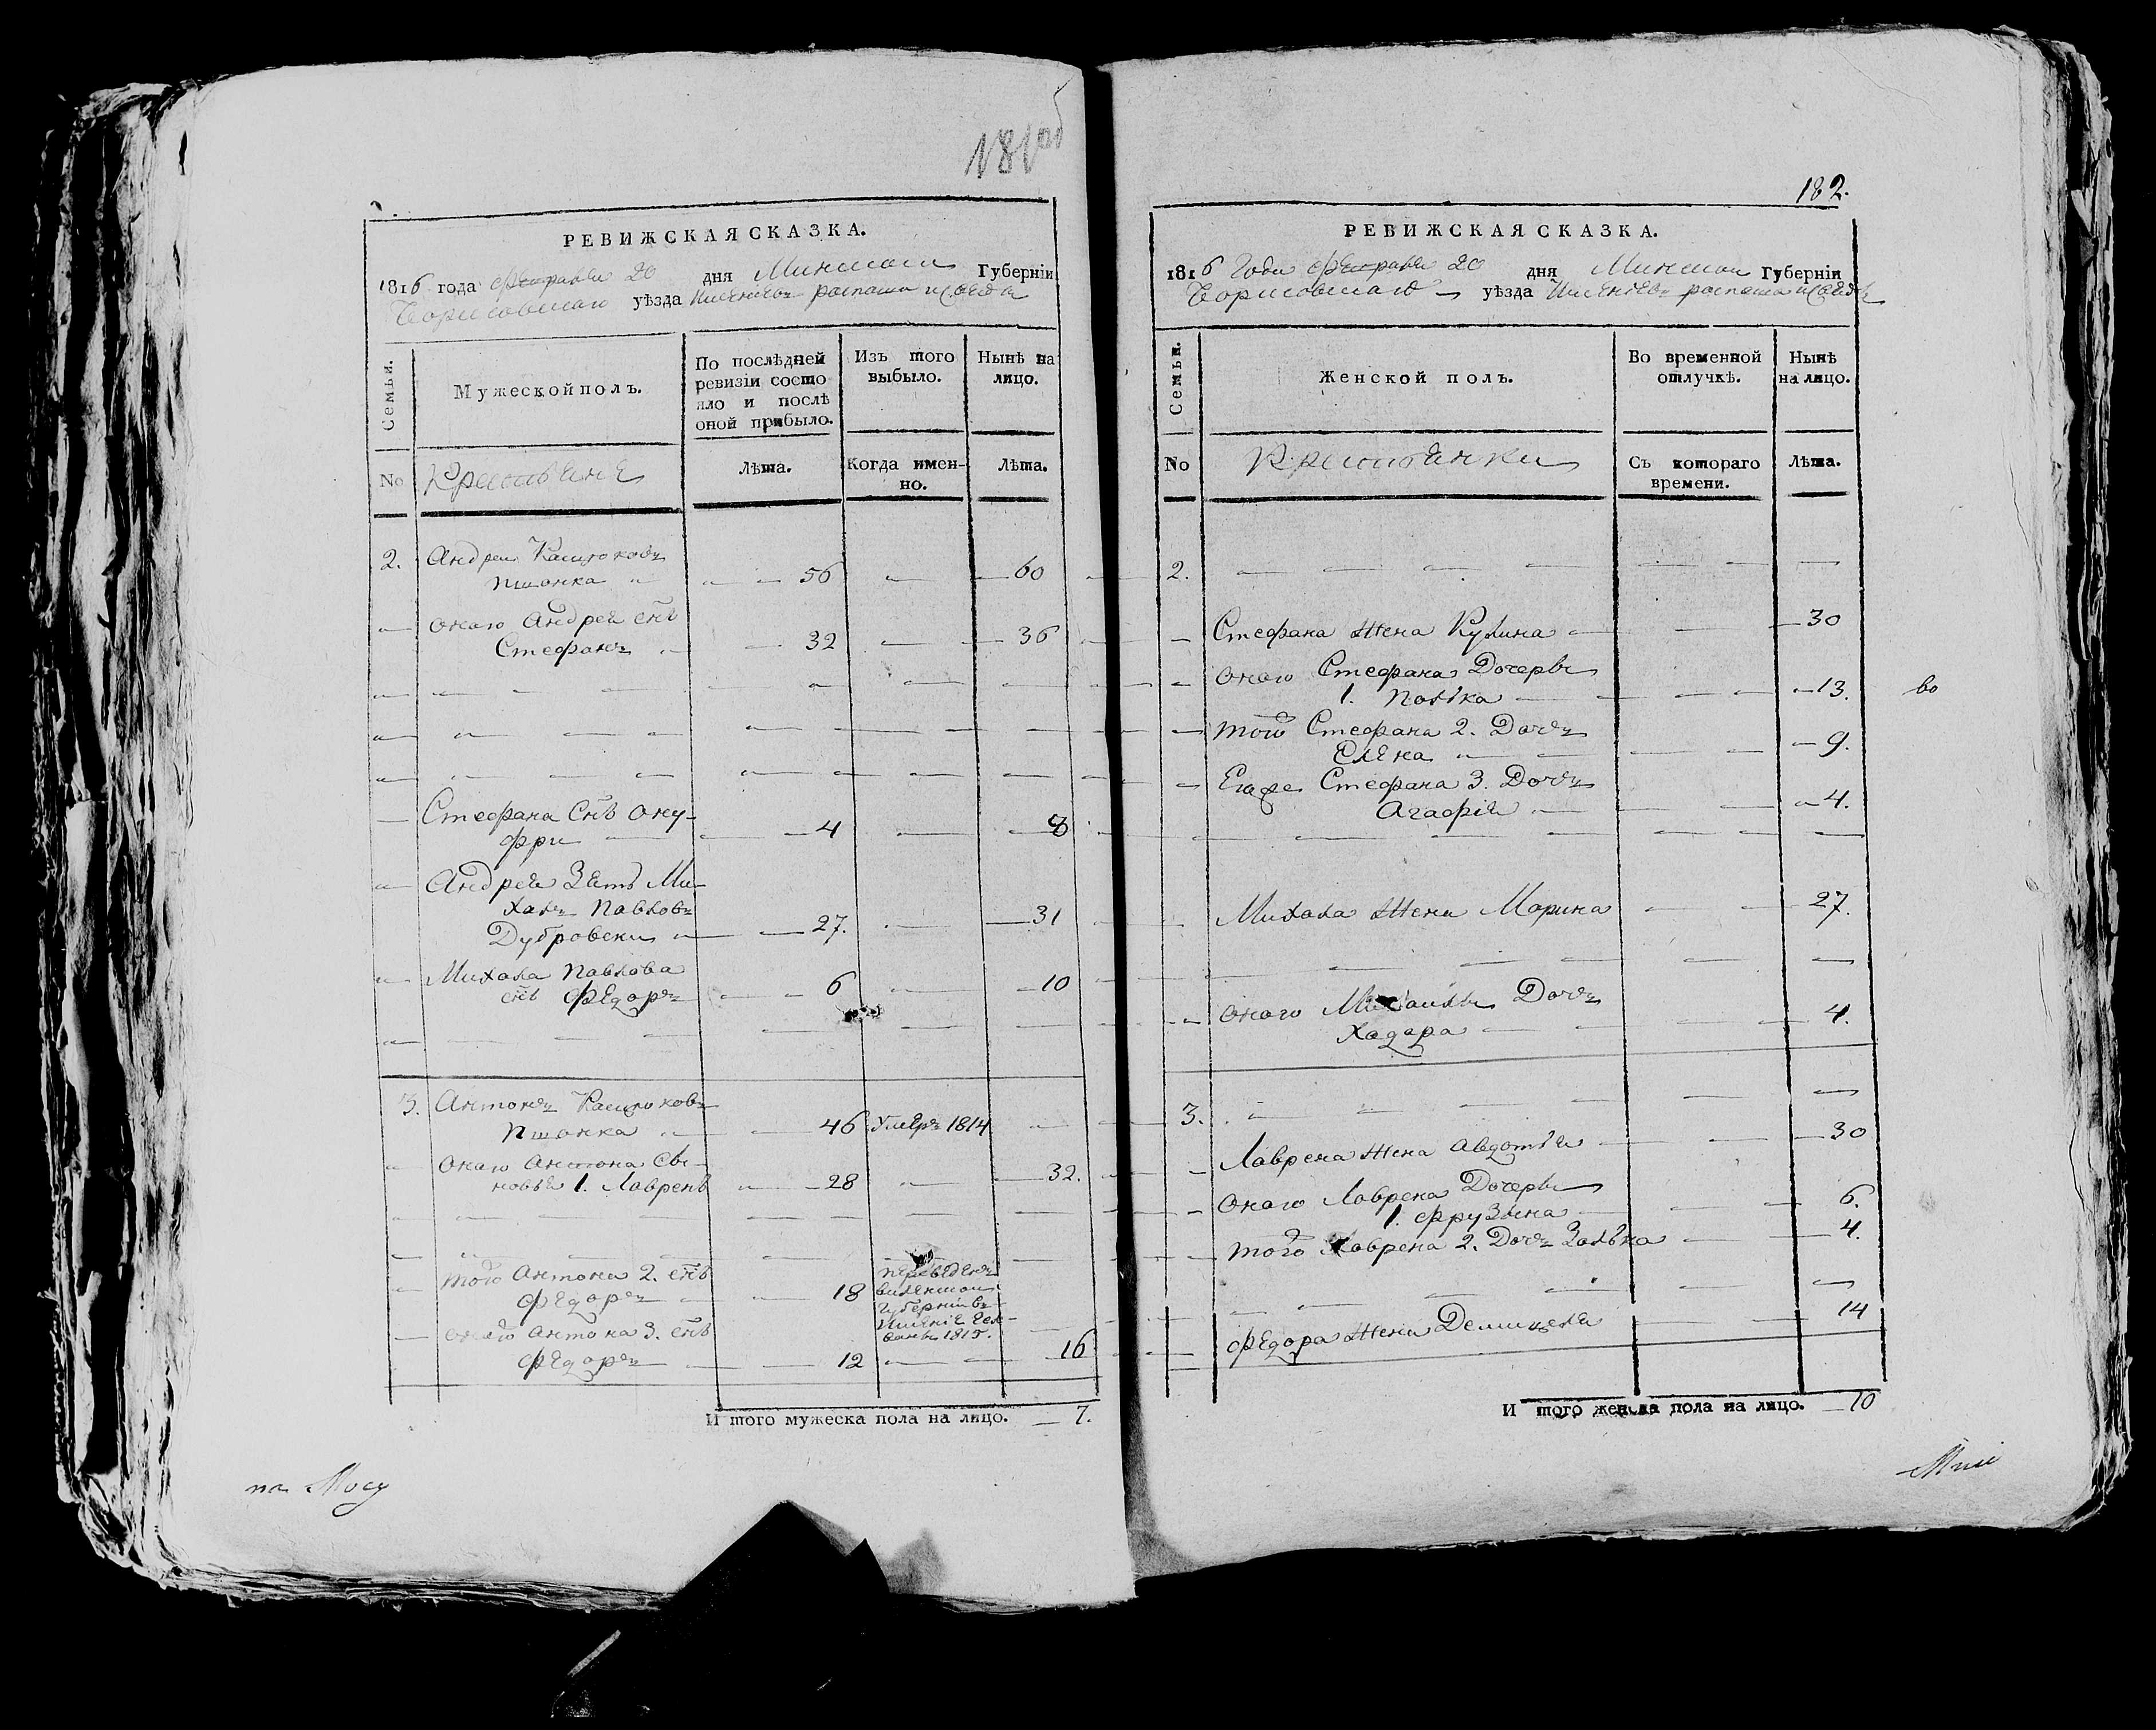 181 об
РЕВИЖСКАЯ СКАЗКА.
1816 года февраля 20 дня Минской Губерніи
Борисовскаго уѣзда
Семьи.
Мужеской полъ.
По послѣдней ревизіи состояло и послѣ оной прибыло.
Изъ того выбыло.
Нынѣ на лицо.
No
Крестьяне
Лѣта.
Когда именно.
Лѣта.
2. Андрей
Пшонка 56 60
оного Андрея снъ
Стефанъ 32 36
Стефана Снъ Ону-
фри 4 8
Андрея Зять Ми-
халъ Павловъ
Дубровски 27. 31
Михала Павлова
снъ Федоръ 6 10
3. Антонъ
Пшонка 46 Умеръ 1814
оного Антона Сы-
новья 1. Лавренъ 28 32.
того Антона 2. снъ
Федоръ 18 переведенъ
виленской
Губерніи въ
имѣніе
1815.
оного Антона 3. снъ
Федоръ 12 16
И того мужеска пола на лицо. 7.
на
182.
РЕВИЖСКАЯ СКАЗКА.
1816 Года февраля 20 дня Минской Губерніи
Борисовскаго уѣзда
Семьи.
Женской полъ.
Во временной отлучкѣ.
Нынѣ на лицо.
No
Крестьянки
Съ котораго времени.
Лѣта.
2.
Стефана Жена Кулина 30
оного Стефана Дочерьи
1. Полька 13.
во
того Стефана 2. Дочъ
Елена 9.
Егаже Стефана 3. Дочъ
Агафія 4.
Михала Жена Марина 27.
оного Михаилы Дочъ
Ходара 4.
3.
Лаврена Жена Авдотья 30
оного Лаврена Дочерьи
1. Фрузына 6.
того Лаврена 2. Дочъ Золька 4.
Федора Жена 14
И того женска пола на лицо. 10